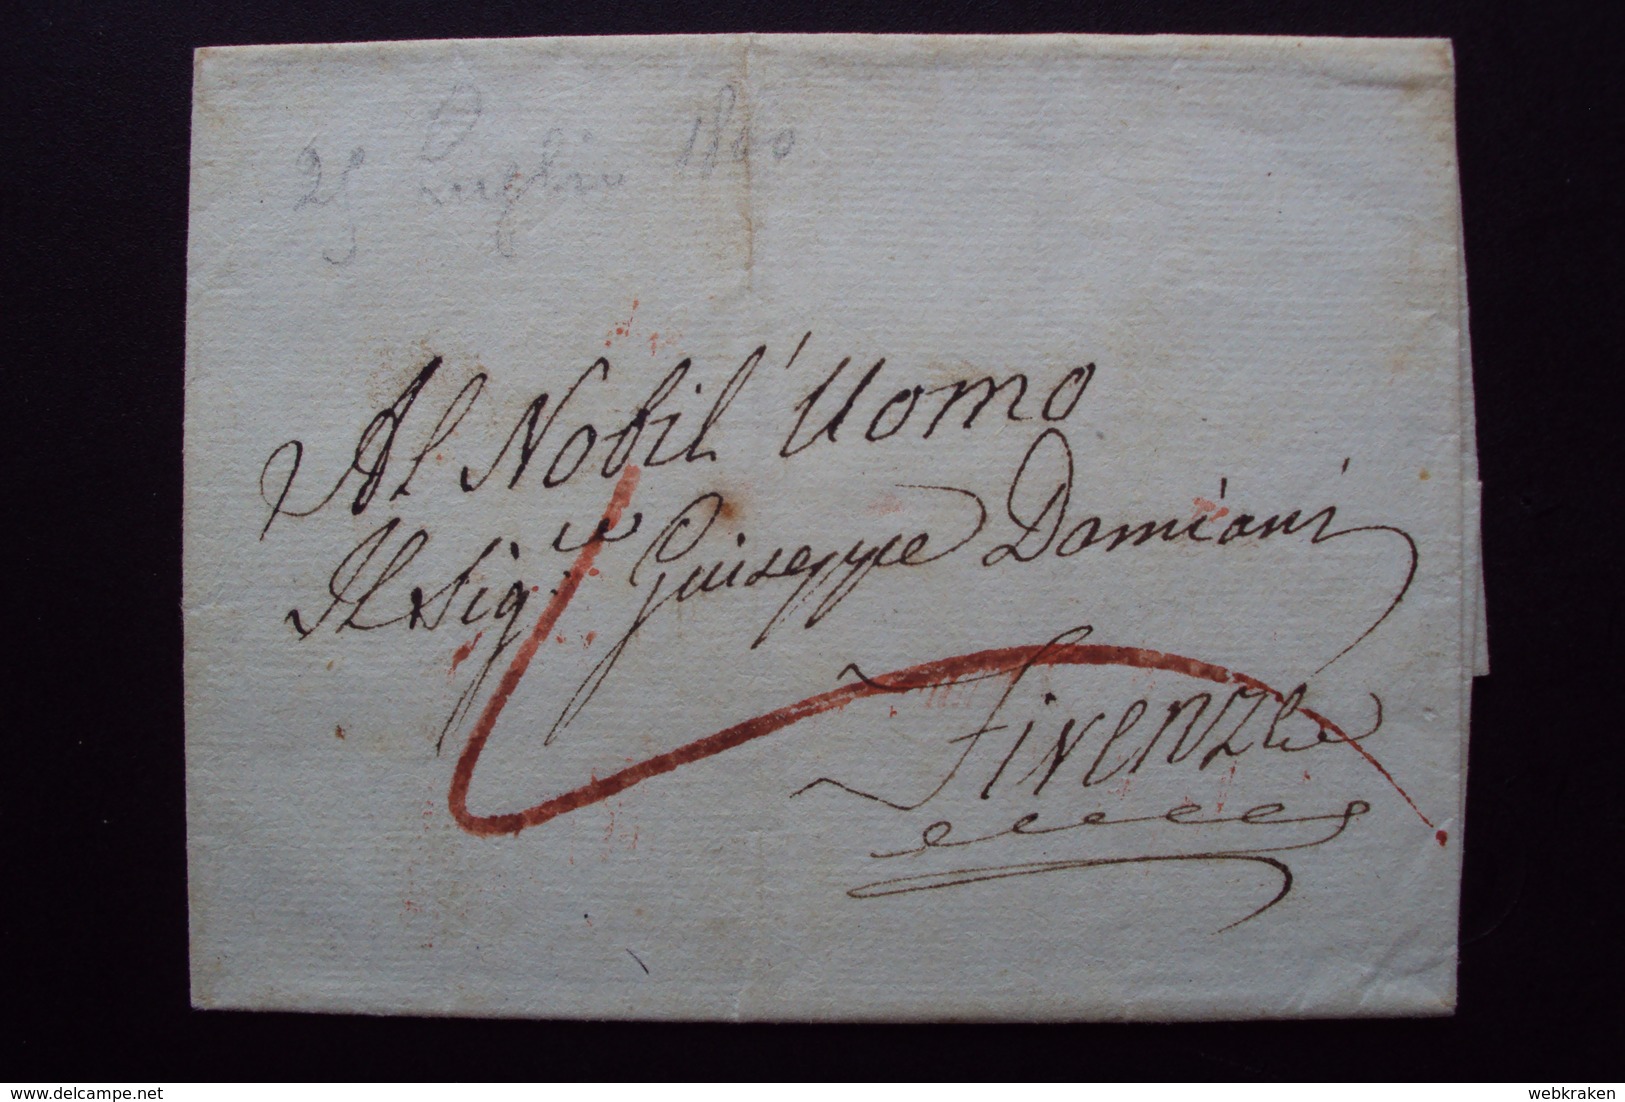 25 Luglio 1800
Al Nobil' Uomo
Il Sig.re Giuseppe Damiani
Firenze
delcampe.net
webkraken